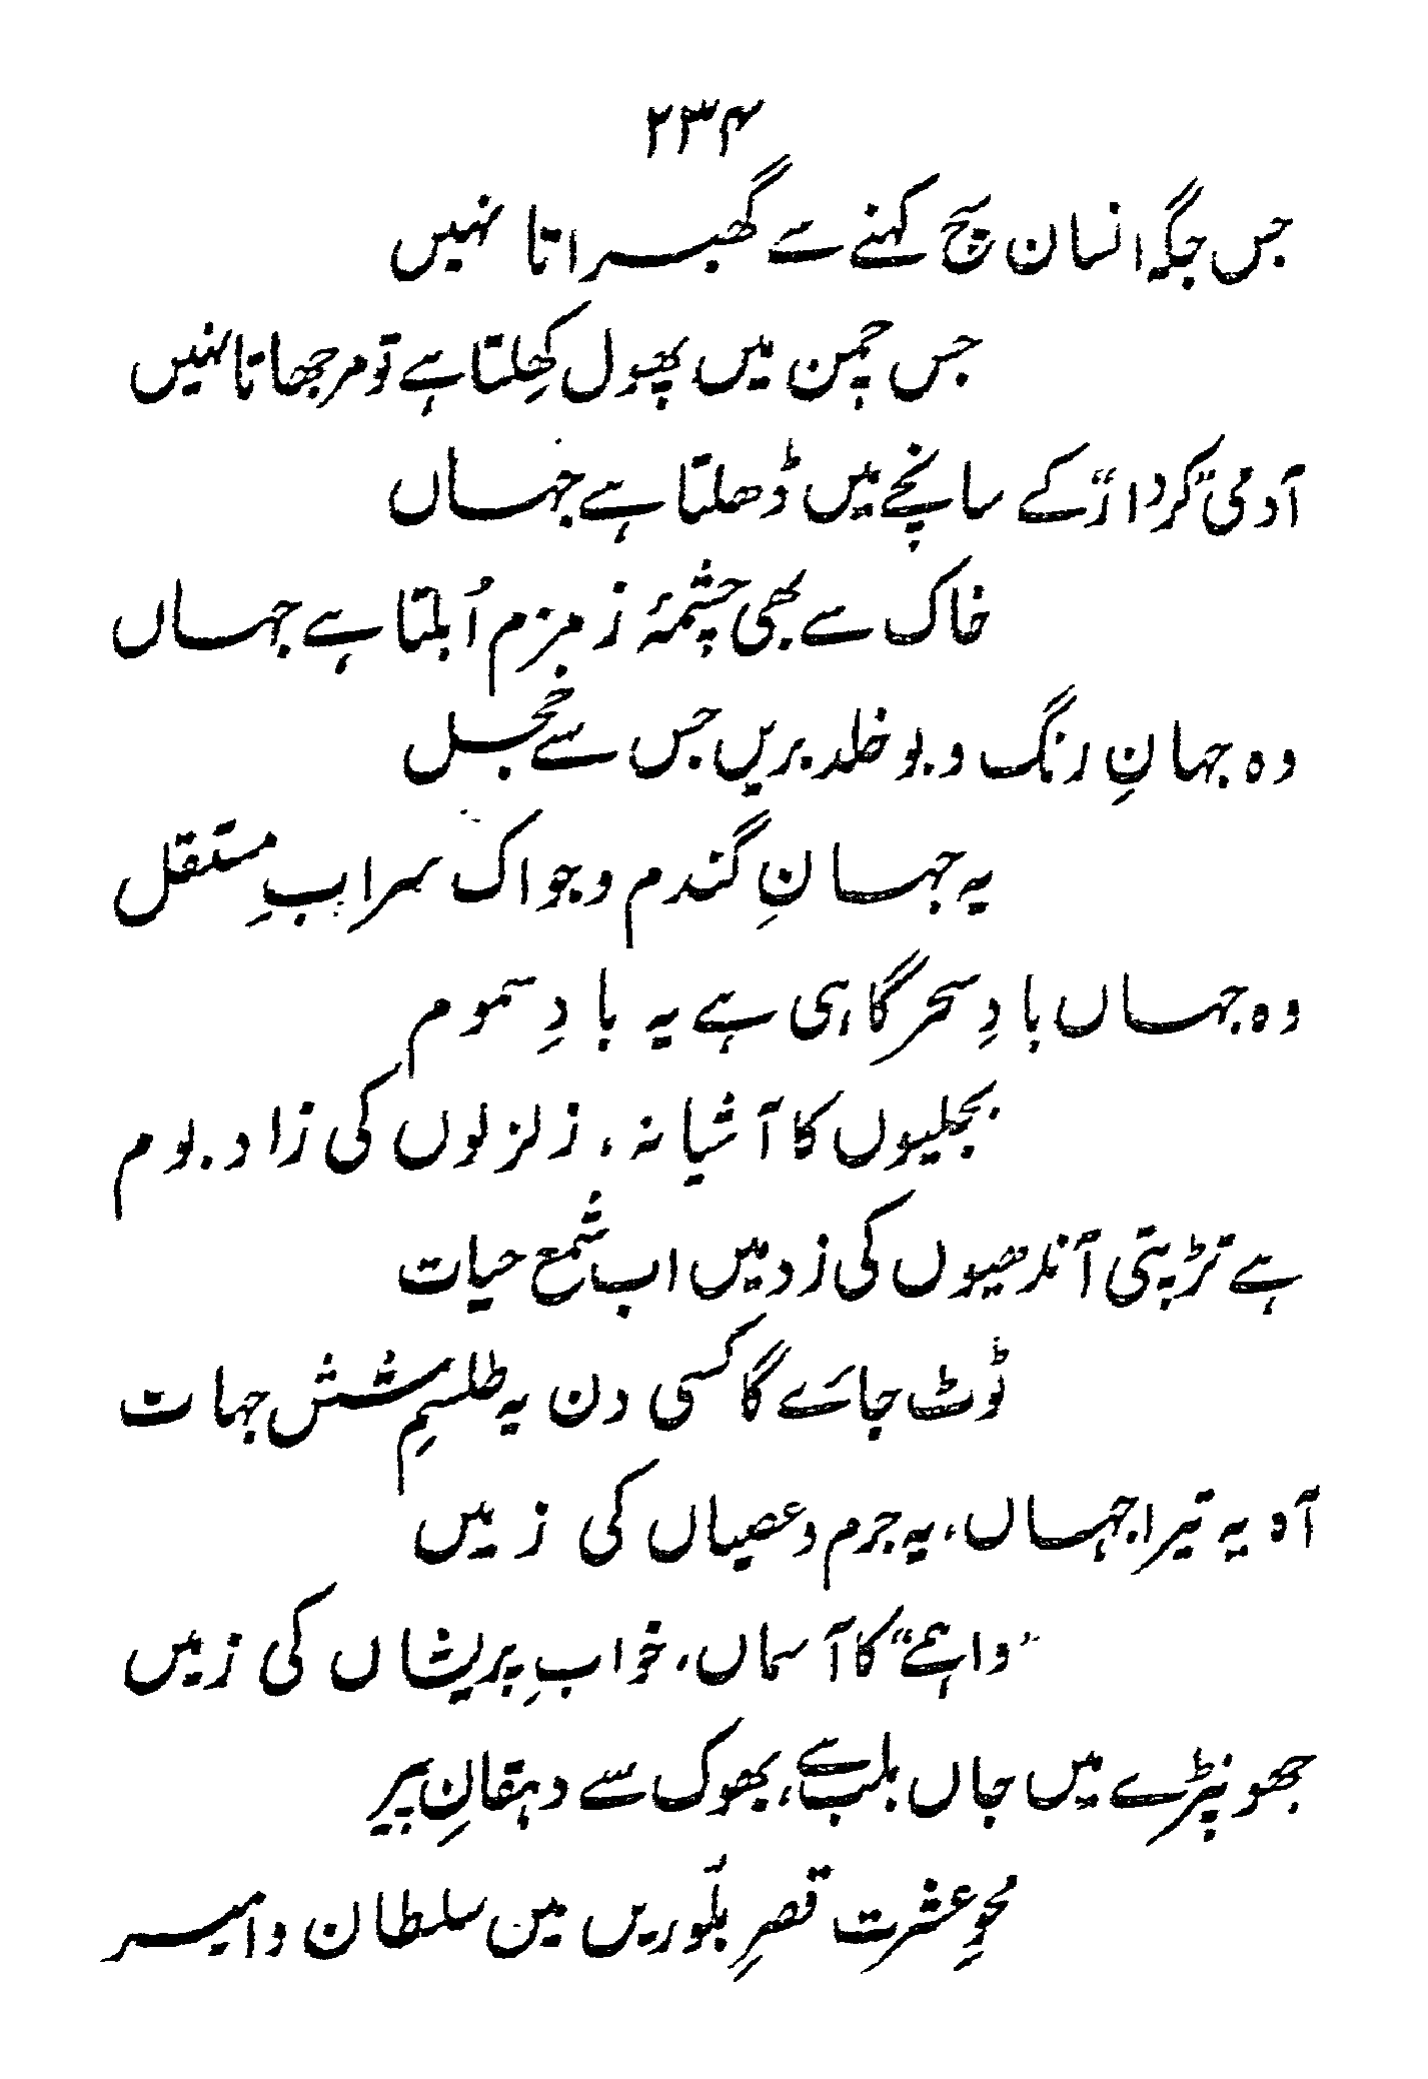 ۲۳۴
جس جگہ انسان سچ کہنے سے گھبراتا نہیں
جس چمن میں پھول کھِلتا ہے تو مرجھاتا نہیں
آدمی "کردار" کے سانچے میں ڈھلتا ہے جہاں
خاک سے بھی چشمۂ زمزم اُبلتا ہے جہاں
وہ جہانِ رنگ و بو خلد بریں جس سے خجل
یہ جہانِ گندم و جو اک سرابِ مستقل
وہ جہاں بادِ سحر گاہی ہے یہ بادِ سموم
بجلیوں کا آشیانہ، زلزلوں کی زاد بوم
ہے تڑپتی آندھیوں کی زد میں اب شمع حیات
ٹوٹ جائے گا کسی دن یہ طلسمِ شش جہات
آہ یہ تیرا جہاں، یہ جرم و عصیاں کی زمیں
"واہمے" کا آسماں، خوابِ پریشاں کی زمیں
جھونپڑے میں جاں بلب ہے، بھوک سے دہقانِ پیر
محوِ عشرت قصرِ بلّوریں میں سلطان و امیر